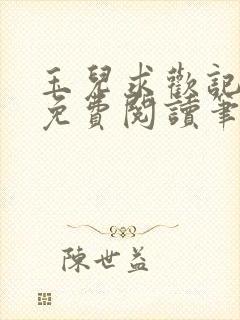 玉兒求歡記
免費閱讀筆
陳世益